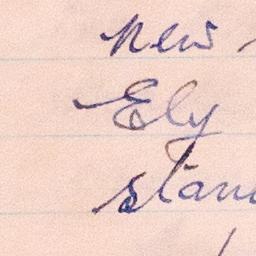 new
Ely
stam